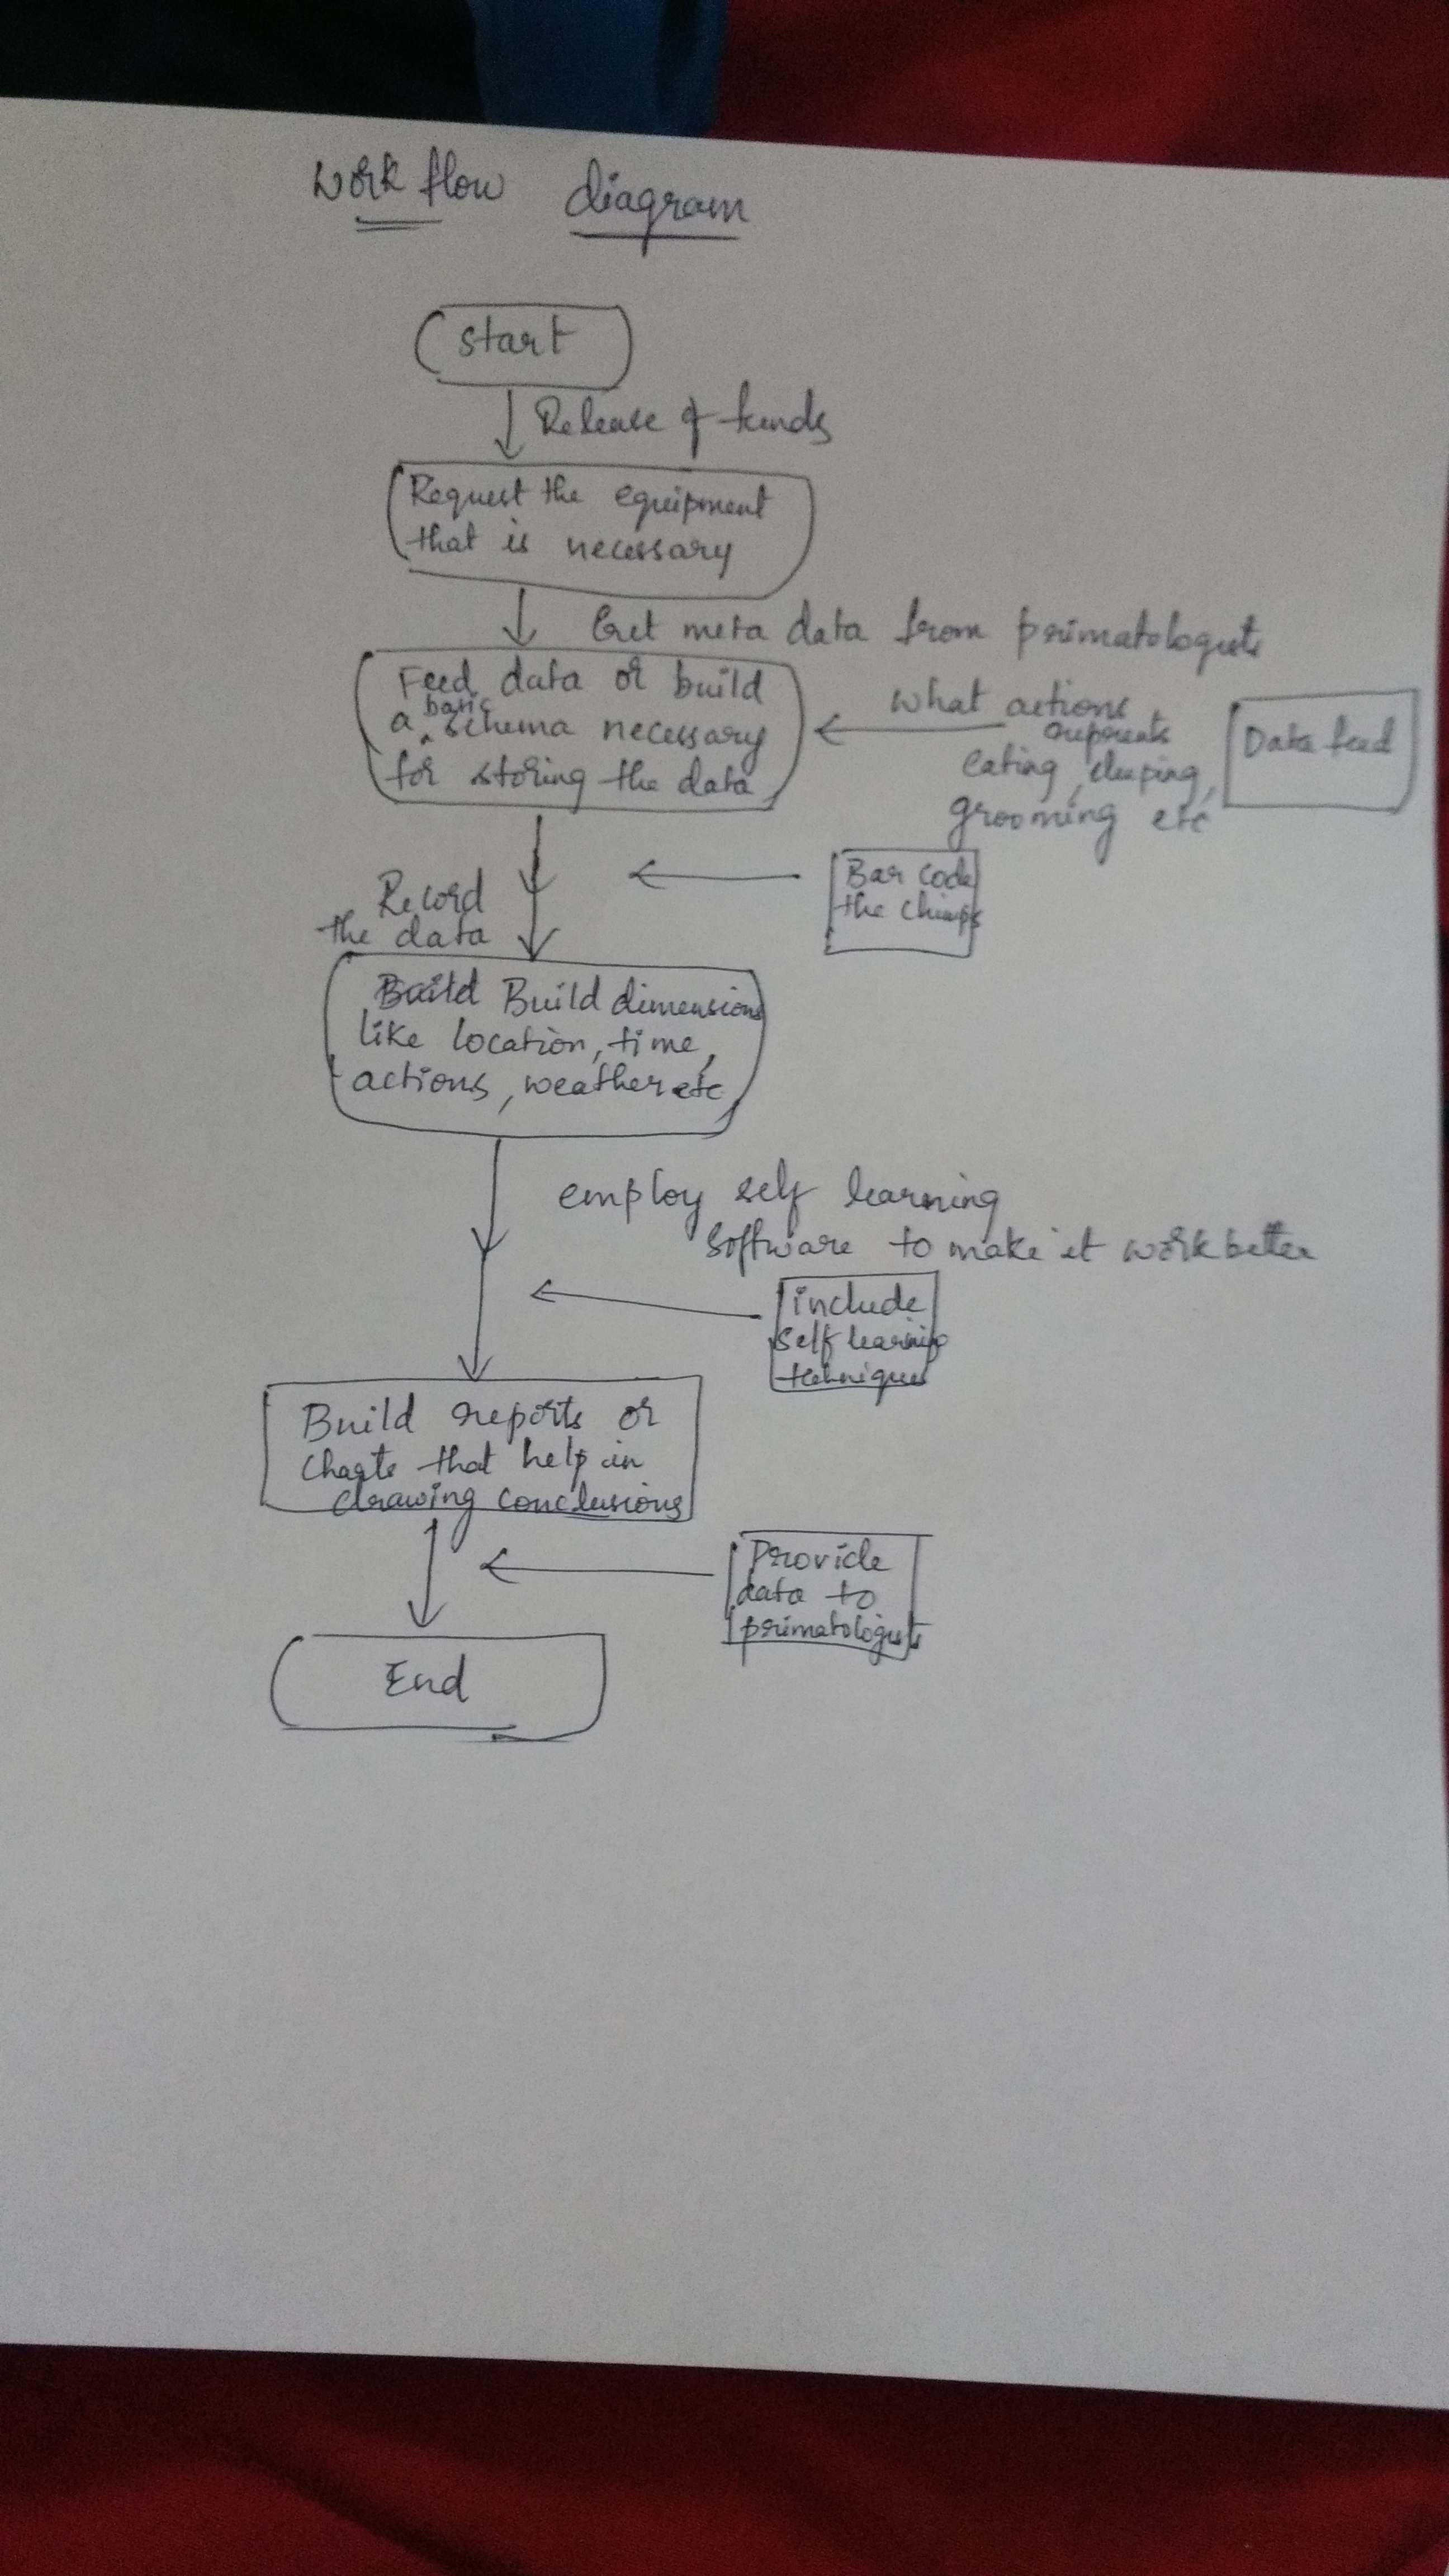 Work flow diagram
Start
Release of funds
Request the equipment
that is necessary
Get meta data from primatologists
Feed data or build
a basic schema necessary
for storing the data
what actions
represents
eating, sleeping,
grooming etc
Data feed
Record
the data
Bar code
the chimps
Build dimensions
like location, time,
actions, weather etc
employ self learning
software to make it work better
include
self learning
techniques
Build reports or
charts that help in
drawing conclusions
Provide
data to
primatologists
End